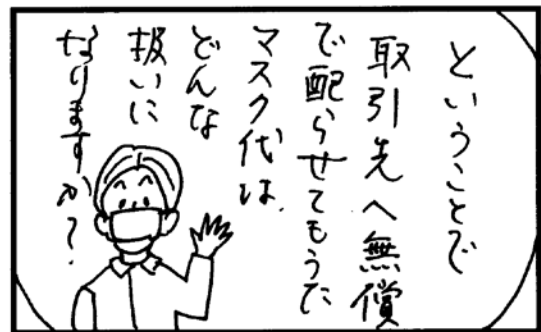 ということで
取引先へ無償
で配らせてもうた
マスク代は、
どんな
扱いに
なりますか?